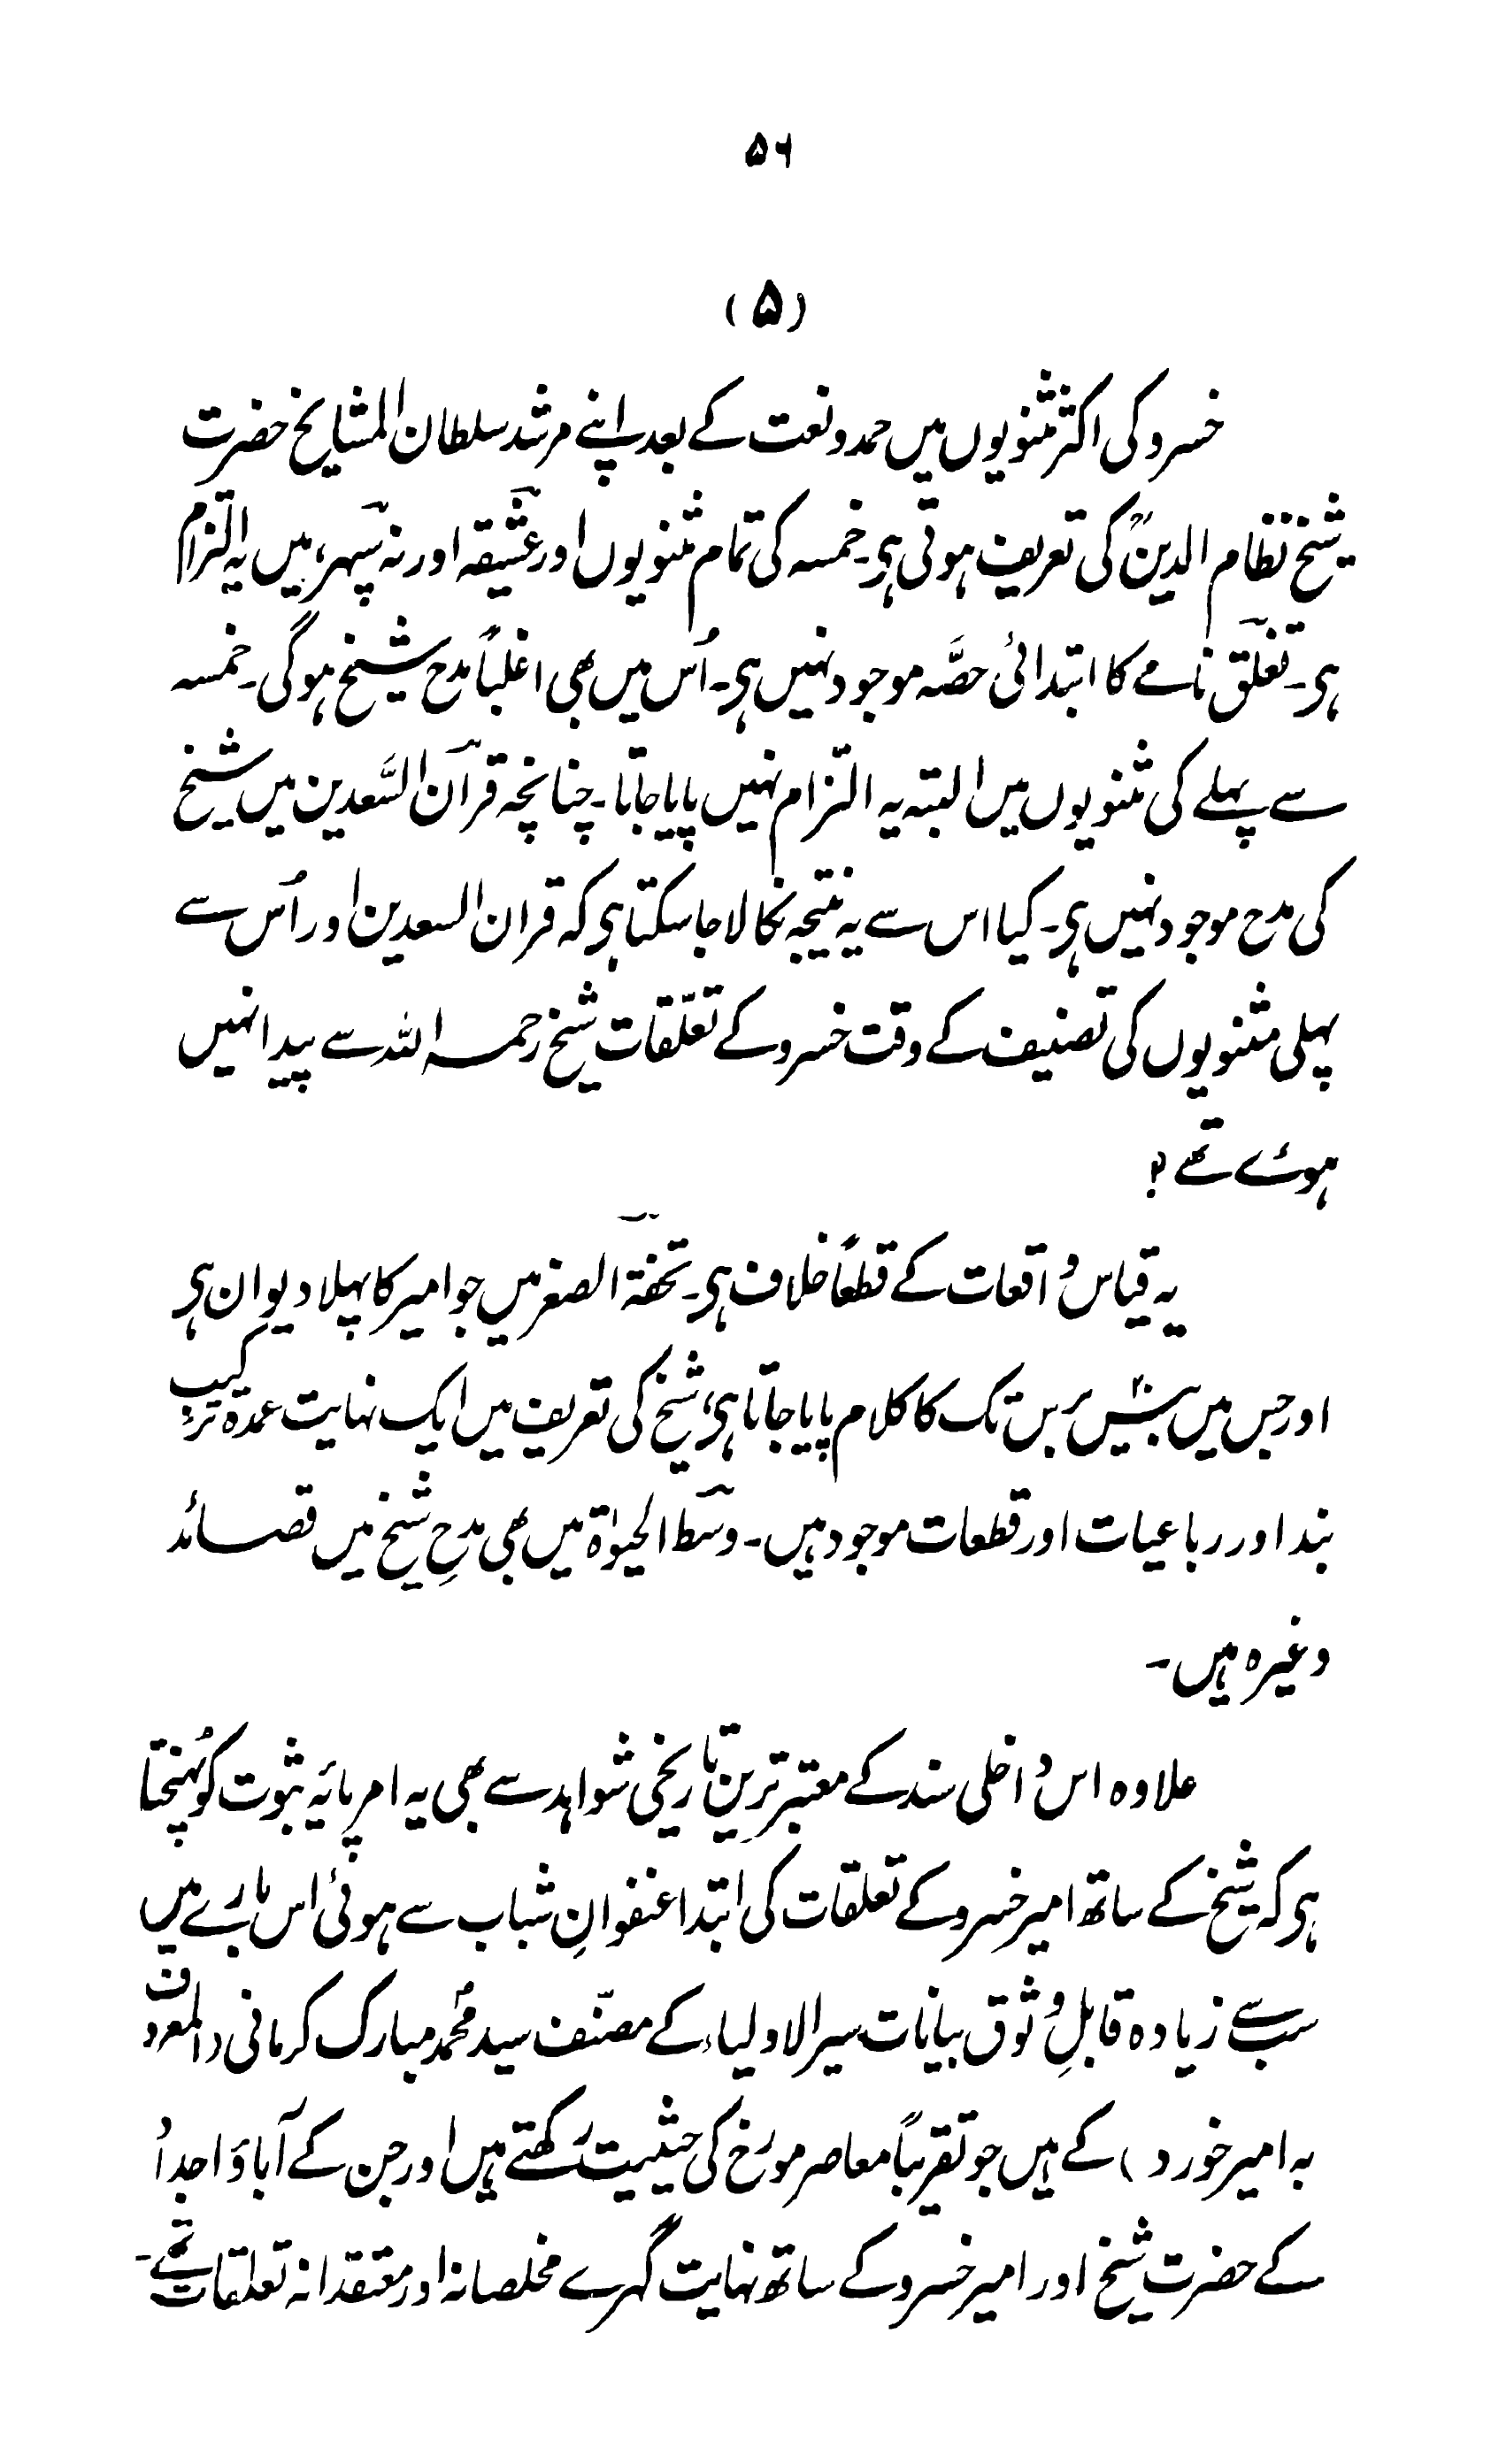 ۵۶
(۵)
خسرو کی اکثر مثنویوں میں حمد و نعت کے بعد اپنے مرشد سلطان المشایخ حضرت
شیخ نظام الدینؒ کی تعریف ہوتی ہی۔ خمسہ کی تمام مثنویوں اور عشیقہ اور نہ سپہر، میں یہ التزام
ہی۔ تغلق نامے کا ابتدائی حصّہ موجود نہیں ہی۔ اُس میں بھی اغلباً مدح شیخ ہوگی۔ خمسہ
سے پہلے کی مثنویوں میں البتہ یہ التزام نہیں پایا جاتا۔ چنانچہ قرآن السَّعدین میں شیخ
کی مدح موجود نہیں ہی۔ کیا اس سے یہ نتیجہ نکالا جاسکتا ہی کہ قران السعدین اور اُس سے
پہلی مثنویوں کی تصنیف کے وقت خسرو کے تعلّقات شیخ رحمہ اللہ سے پیدا نہیں
ہوئے تھے؟
یہ قیاس واقعات کے قطعاً خلاف ہی۔ تحفۃ الصغر میں جو امیر کا پہلا دیوان ہی
اور جس میں بیسؔ برس تک کا کلام پایا جاتا ہی، شیخ کی تعریف میں ایک نہایت عمدہ ترکیب
بند اور رباعیات اور قطعات موجود ہیں۔ وسط الحیوٰۃ میں بھی مدحِ شیخ میں قصائد
وغیرہ ہیں۔
علاوہ اس داخلی سند کے معتبر ترین تاریخی شواہد سے بھی یہ امر پایۂ ثبوت کو پہُنچتا
ہی کہ شیخ کے ساتھ امیر خسرو کے تعلقات کی ابتدا عنفوانِ شباب سے ہوئی اس بارے میں
سب سے زیادہ قابلِ وثوق بیانات سیرالاولیاء کے مصنّف سید محمدؐ مبارک کرمانی (المعروف
بہ امیر خورد) کے ہیں جو تقریباً معاصر مورّخ کی حیثیت رکھتے ہیں اور جن کے آباؤ اجداد
کے حضرت شیخ اور امیر خسرو کے ساتھ نہایت گہرے مخلصانہ اور معتقدانہ تعلقات تھے۔